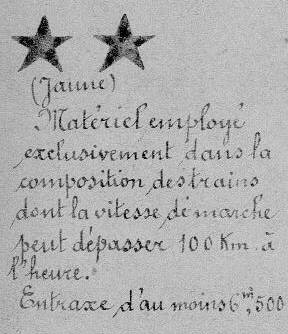 (Jaune)
Matériel employé
exclusivement dans la
composition des trains
dont la vitesse de marche
peut dépasser 100 Km. à
l'heure.
Entraxe d'au moins 6m,500